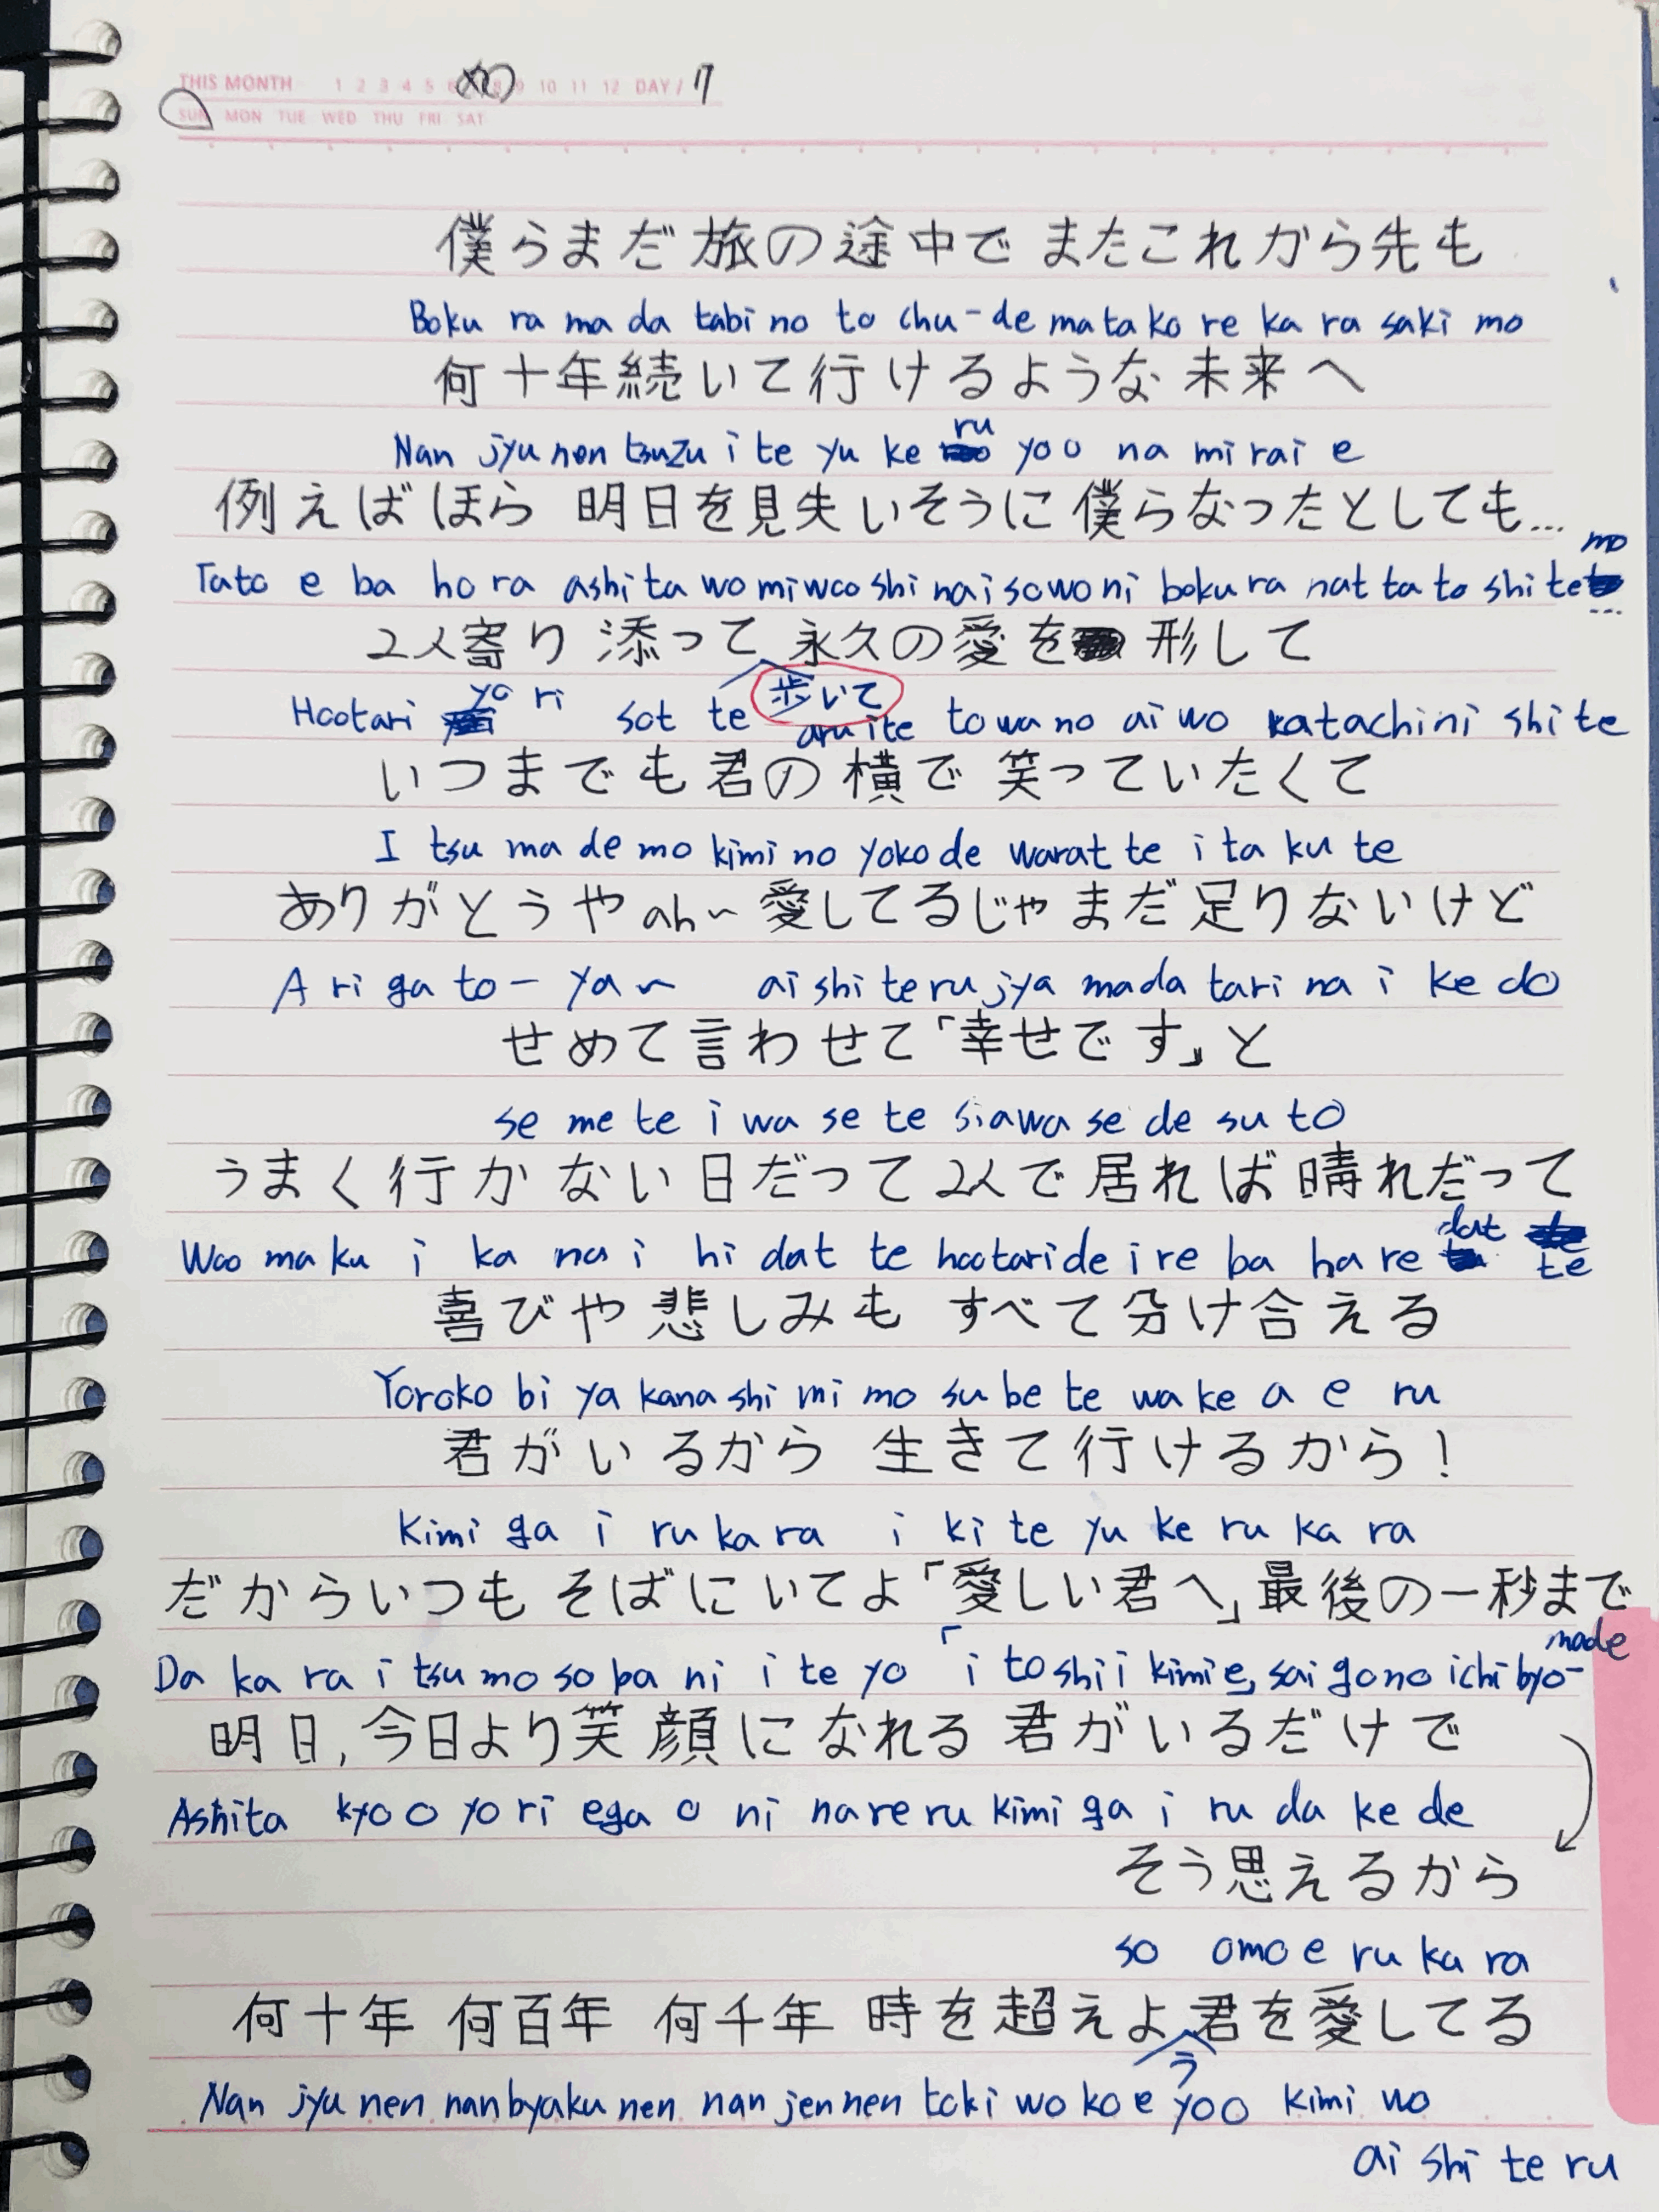 THIS MONTH 1 2 3 4 5 6 8 9 10 11 12 DAY / 17
SUN MON TUE WED THU FRI SAT
僕らまだ旅の途中で またこれから先も
Boku ra ma da tabi no to chu-de ma ta ko re ka ra saki mo
何十年続いて行けるような未来へ
Nan jyu nen tsuzu i te yu ke ru yoo na mi rai e
例えばほら 明日を見失いそうに 僕らなったとしても...
Tato e ba ho ra ashi ta wo mi woo shi nai so wo ni boku ra nat ta to shi te mo ...
2人寄り添って 歩いて 永久の愛を 形して
Hootari yo ri sot te aru ite to wa no ai wo katachi ni shi te
いつまでも君の横で 笑っていたくて
I tsu ma de mo kimi no yoko de warat te i ta ku te
ありがとうや ah~ 愛してるじゃまだ足りないけど
A ri ga to - ya ~ ai shi te ru jya mada tari na i ke do
せめて言わせて「幸せです」と
se me te i wa se te siawa se de su to
うまく行かない日だって 2人で居れば晴れだって
Woo ma ku i ka na i hi dat te hootari de i re ba ha re dat te
喜びや悲しみも すべて分け合える
Yoroko bi ya kana shi mi mo su be te wa ke a e ru
君がいるから 生きて行けるから!
Kimi ga i ru ka ra i ki te yu ke ru ka ra
だからいつも そばにいてよ「愛しい君へ」最後の一秒まで
Da ka ra i tsu mo so ba ni i te yo 「i to shi i kimi e, sai go no ichi byo- made
明日, 今日より笑顔になれる 君がいるだけで
Ashita kyo o yo ri ega o ni na re ru kimi ga i ru da ke de
そう思えるから
so omo e ru ka ra
何十年 何百年 何千年 時を超えよう 君を愛してる
Nan jyu nen nan byaku nen nan jen nen toki wo ko e yoo kimi wo
ai shi te ru